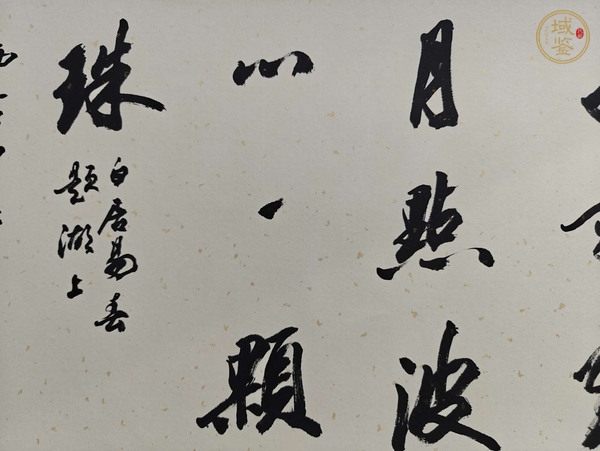 月點波
心一顆
珠
白居易春
題湖上
域鉴